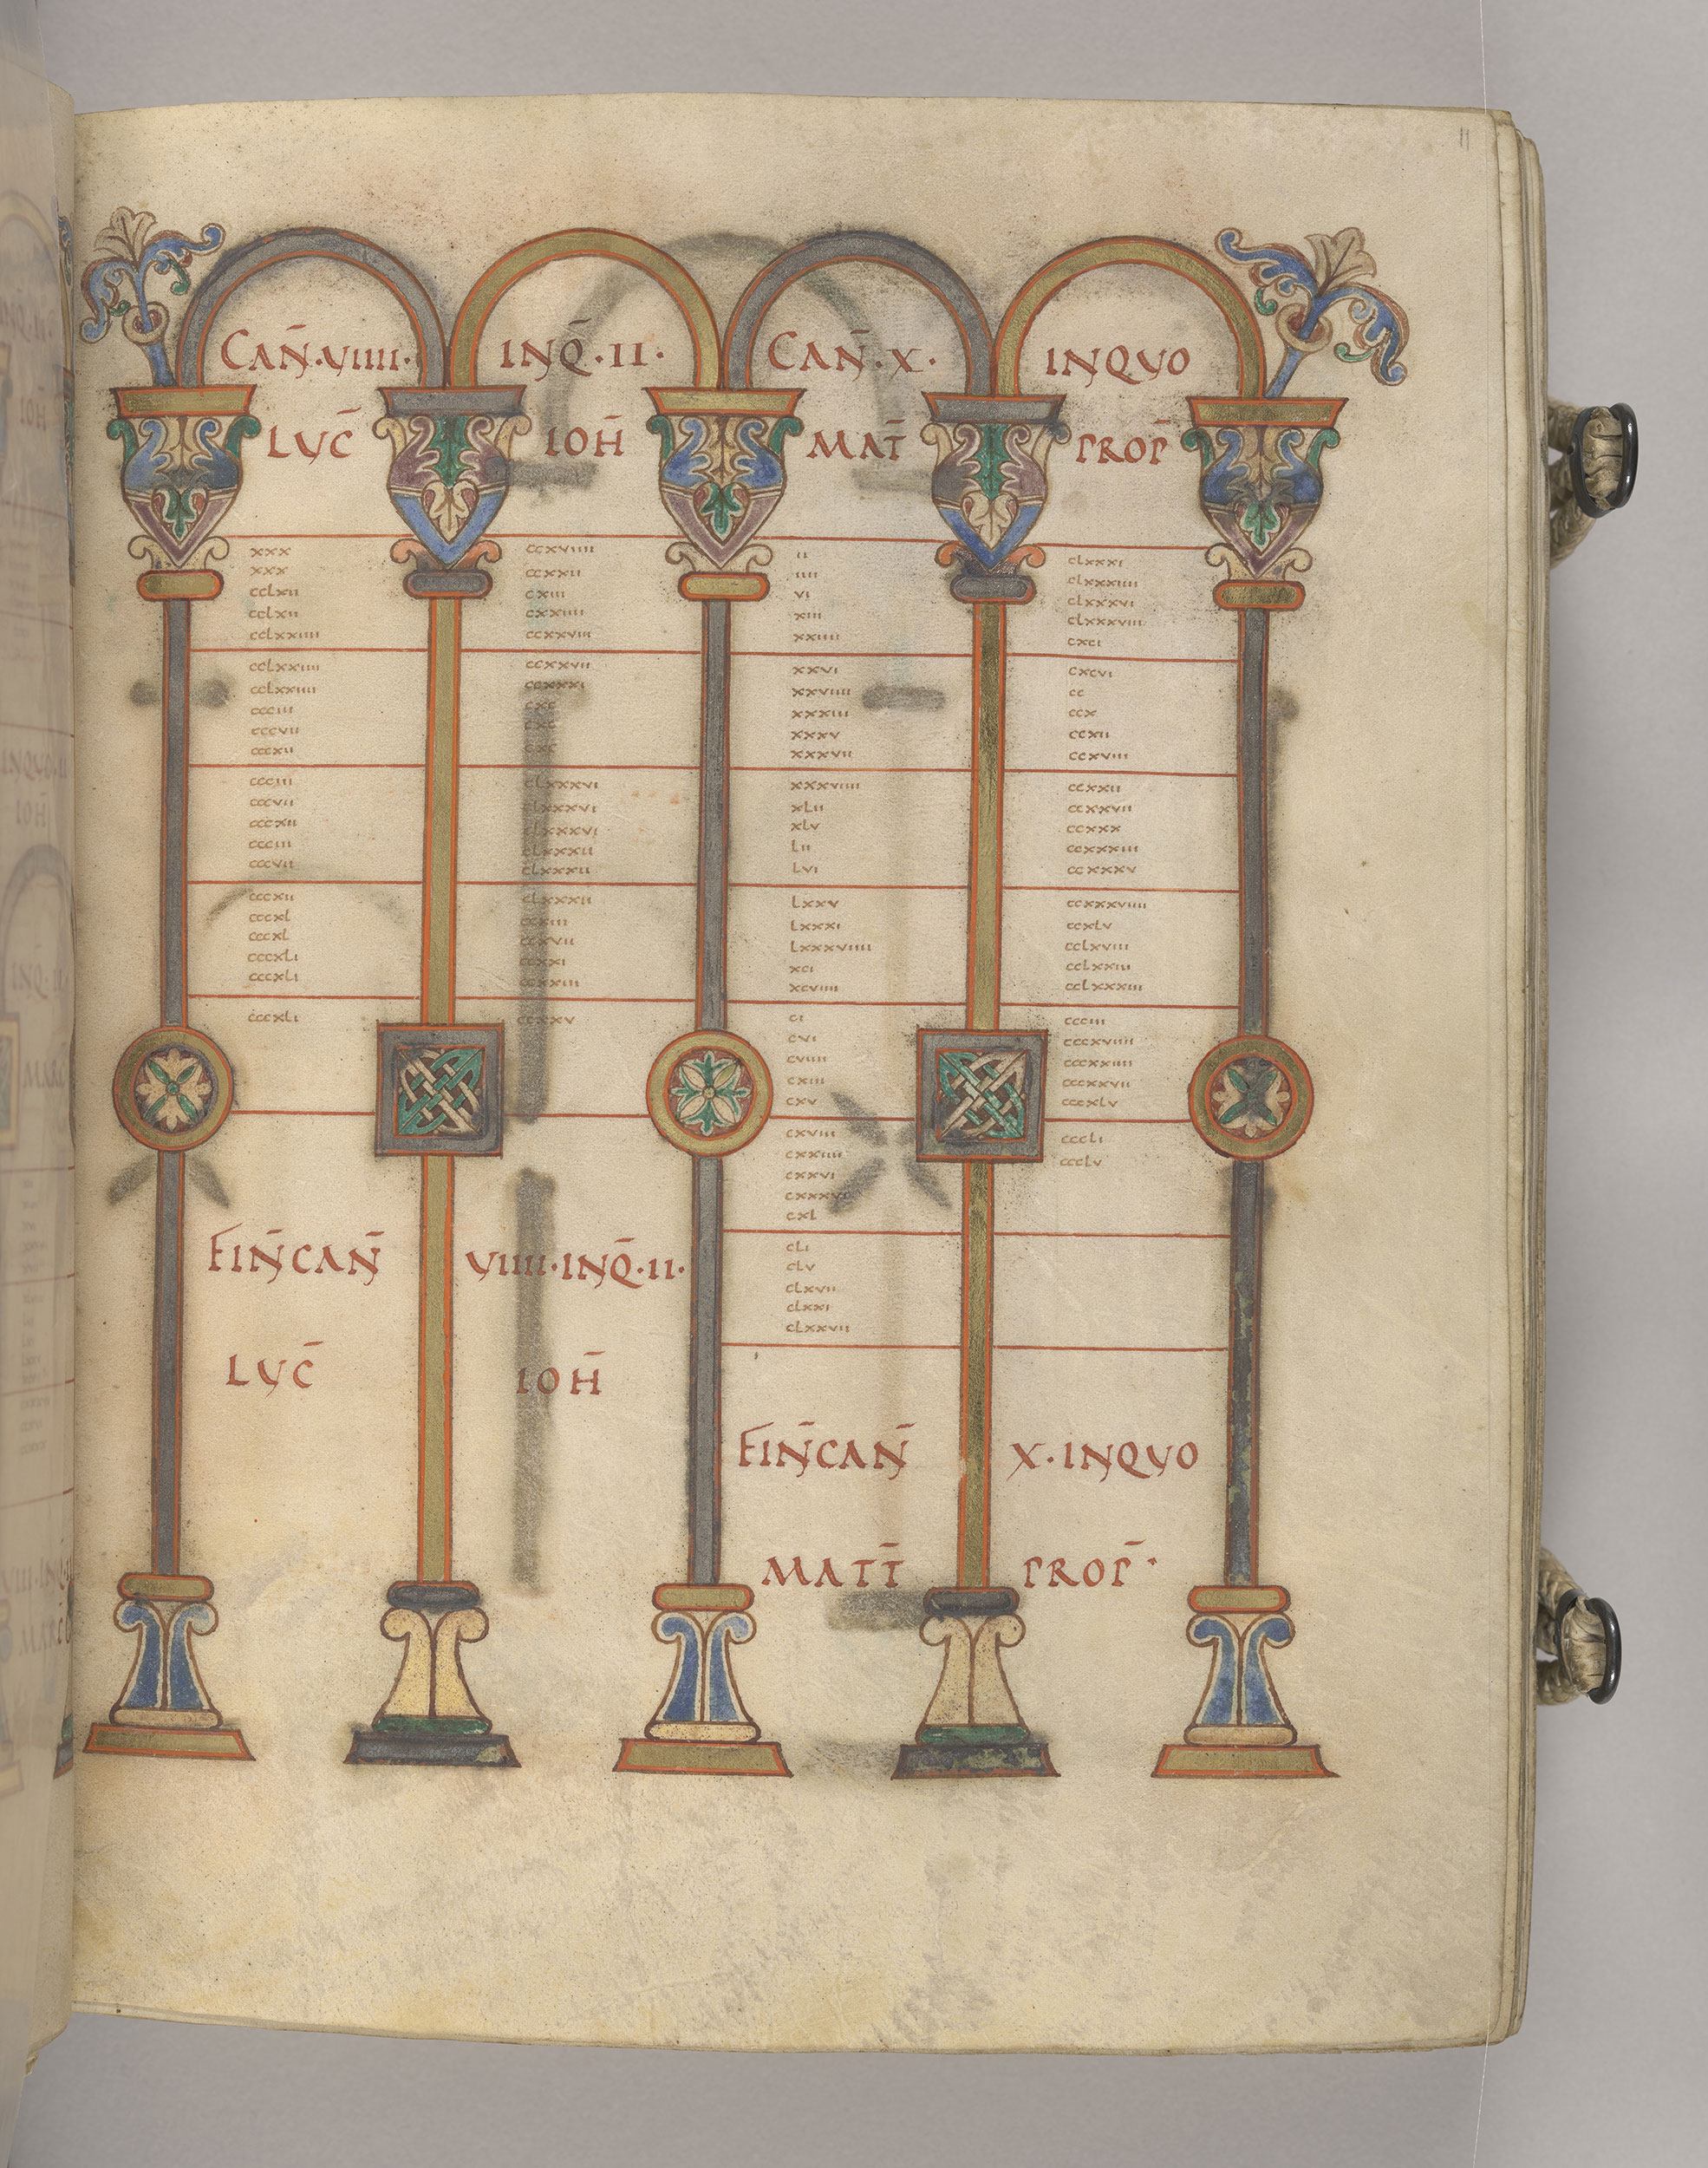 11
CAN̄·VIIII· INQ̄·II· CAN̄·X· INQUO
LUC̄ IOH̄ MAT̄ PROP̄
xxx ccxviiii ii clxxxi
xxx ccxxii iiii clxxxiiii
cclxii cxiii vi clxxxvi
cclxii cxxiiii xiii clxxxviii
cclxxiiii ccxxviii xxiiii cxci
cclxxiiii ccxxvii xxvi cxcvi
cclxxiiii ccxxxi xxviiii cc
ccciii cxc xxxiii ccx
cccvii cxc xxxv ccxii
cccxii cxc xxxvii ccxviii
ccciii clxxxvi xxxviiii ccxxii
cccvii clxxxvi xlii ccxxvii
cccxii clxxxvi xlv ccxxx
ccciii clxxxii lii ccxxxiii
cccvii clxxxii lvi ccxxxv
cccxii clxxxii lxxv ccxxxviiii
cccxl ccxiii lxxxi ccxlv
cccxl ccxvii lxxxviiii cclxviii
cccxli ccxxi xci cclxxiii
cccxli ccxxiii xcviiii cclxxxiii
cccxli ccxxv ci ccciii
cvi cccxviiii
cviiii cccxxiiii
cxiii cccxxvii
cxv cccxlv
cxviii cccli
cxxiiii ccclv
cxxvi
cxxxvi
cxl
cli
clv
clxvii
clxxi
clxxvii
FIN̄CAN̄ VIIII·INQ̄·II·
LUC̄ IOH̄
FIN̄CAN̄ X·INQUO
MATT̄ PROP̄·